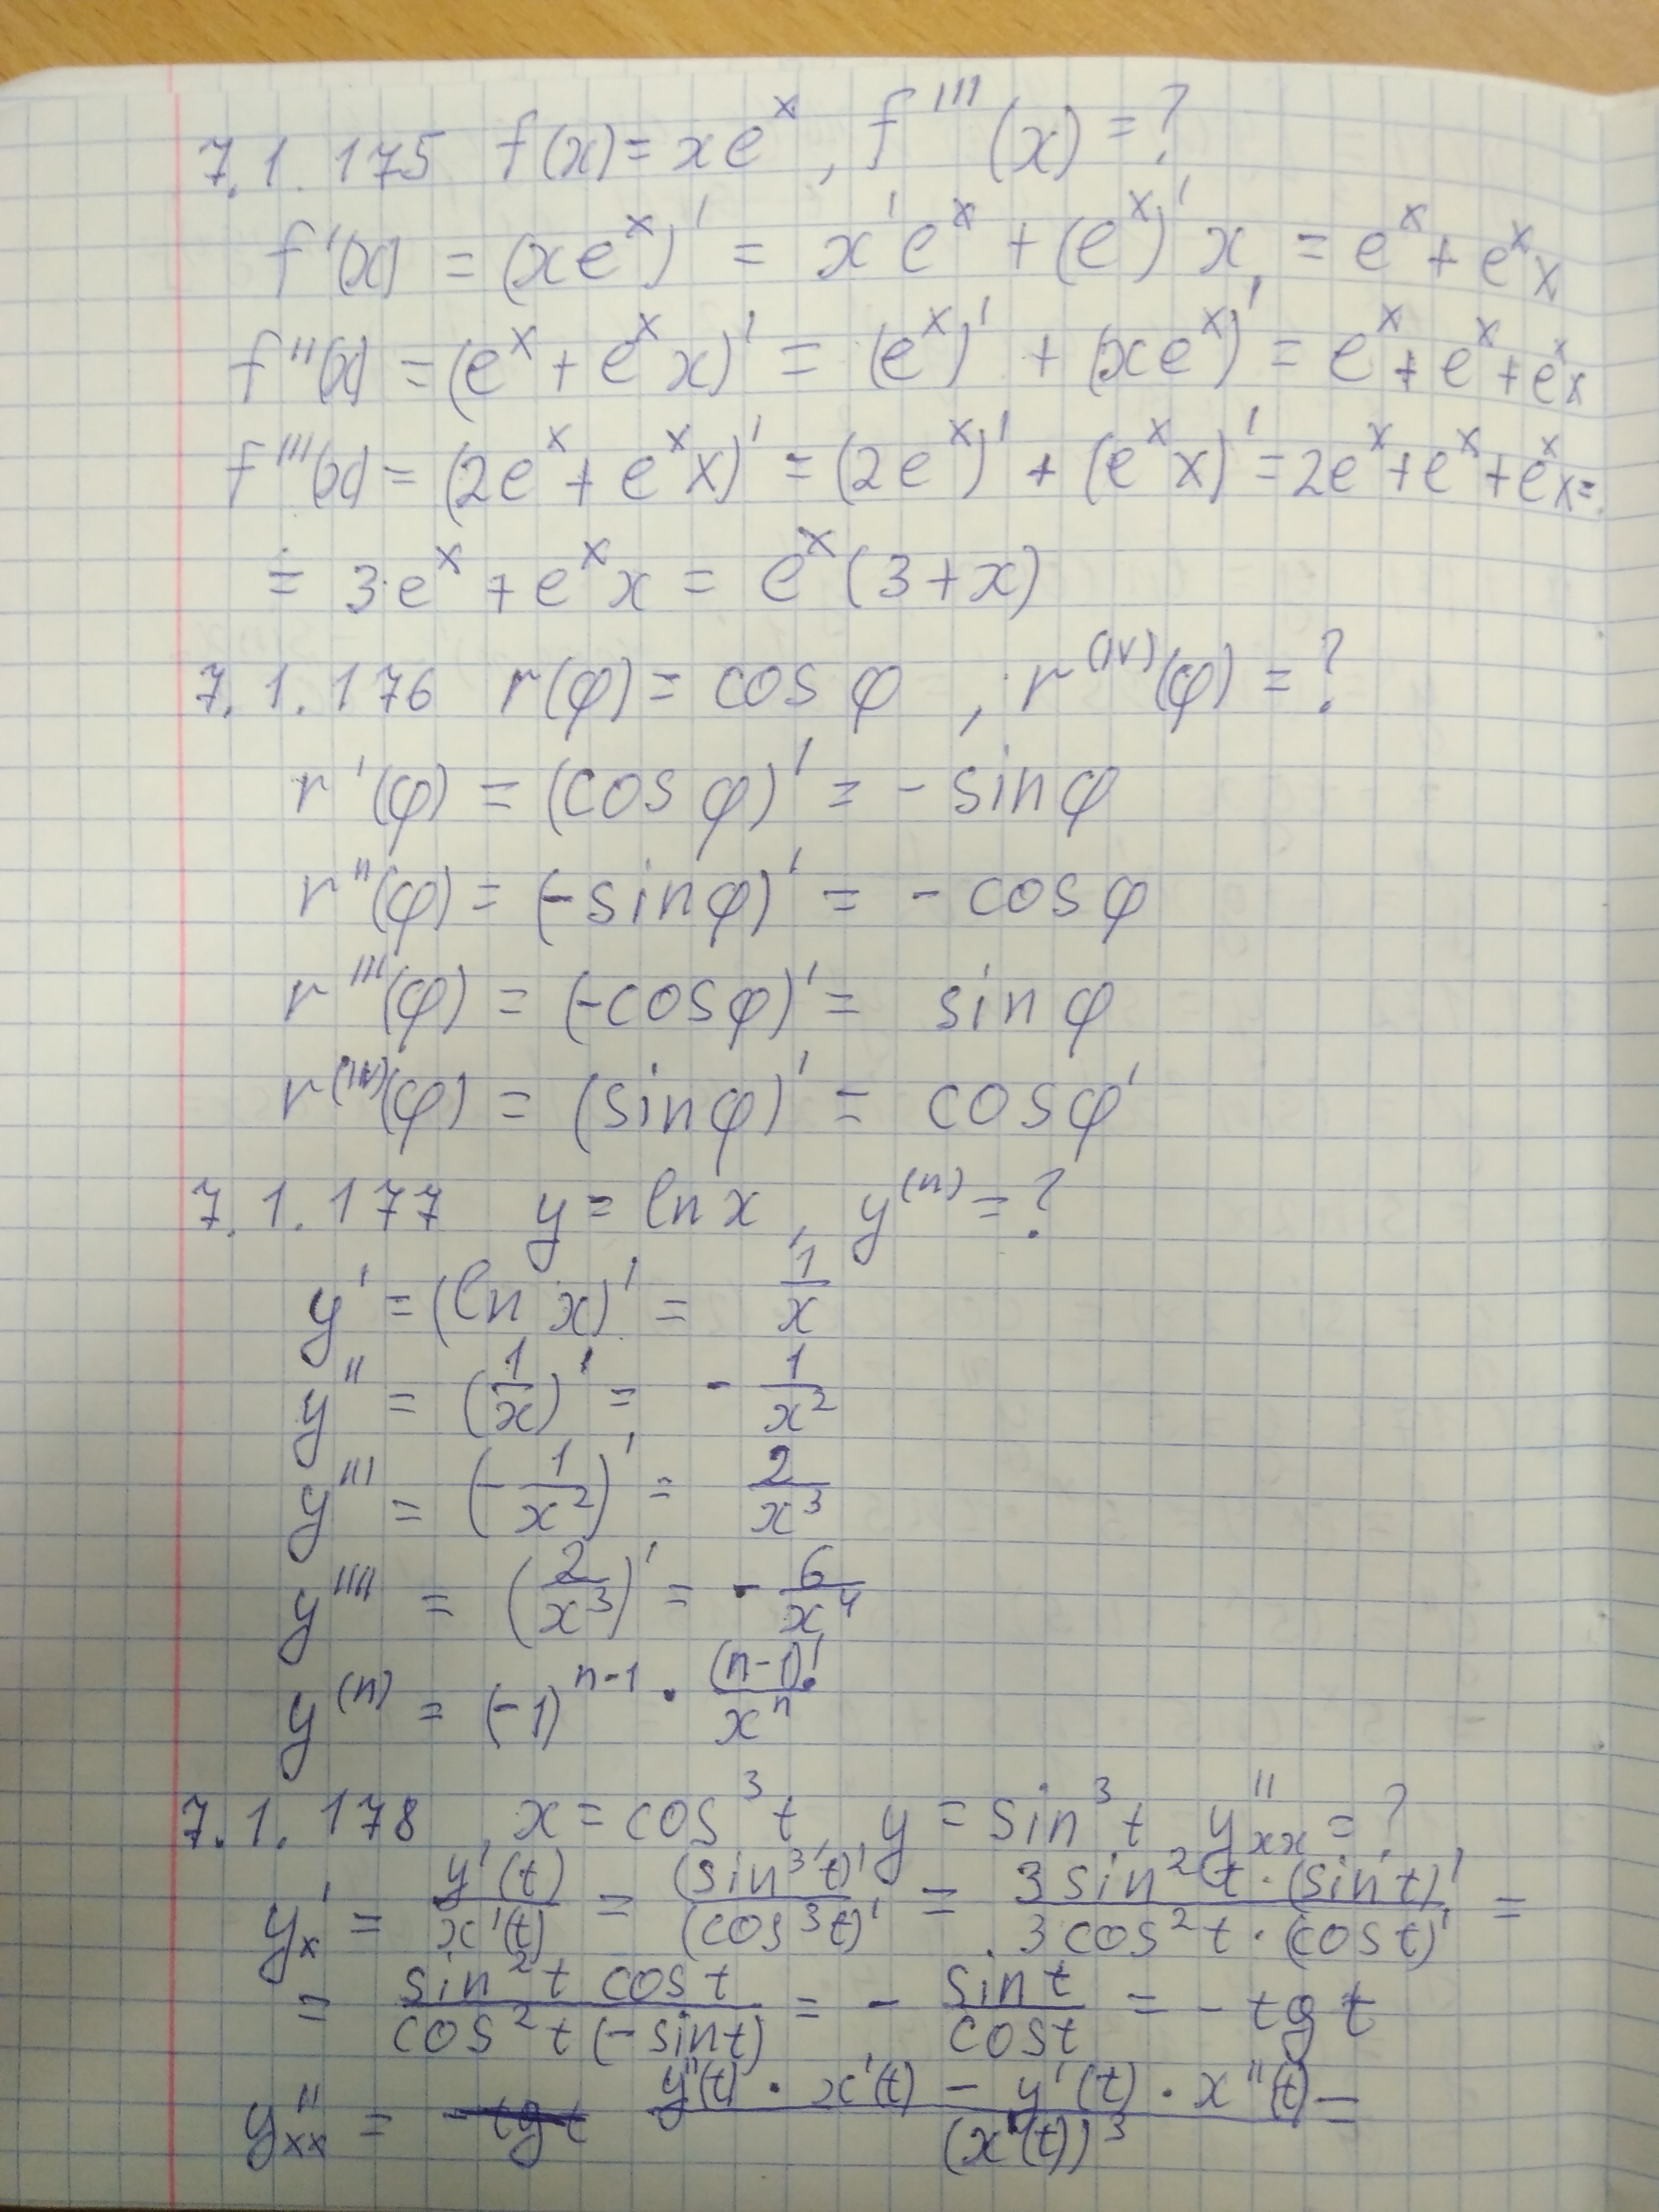 7.1.175 f(x) = xe^x, f'''(x) = ?
f'(x) = (xe^x)' = x'e^x + (e^x)'x = e^x + e^x x
f''(x) = (e^x + e^x x)' = (e^x)' + (xe^x)' = e^x + e^x + e^x x
f'''(x) = (2e^x + e^x x)' = (2e^x)' + (e^x x)' = 2e^x + e^x + e^x x =
= 3·e^x + e^x x = e^x (3 + x)
7.1.176 r(φ) = cos φ, r^(IV)(φ) = ?
r'(φ) = (cos φ)' = - sin φ
r''(φ) = (-sin φ)' = - cos φ
r'''(φ) = (-cos φ)' = sin φ
r^(IV)(φ) = (sin φ)' = cos φ'
7.1.177 y = ln x, y^(n) = ?
y' = (ln x)' = 1/x
y'' = (1/x)' = - 1/x^2
y''' = (- 1/x^2)' = 2/x^3
y'''' = (2/x^3)' = - 6/x^4
y^(n) = (-1)^(n-1) · (n-1)!/x^n
7.1.178, x = cos^3 t, y = sin^3 t, y''xx = ?
y'x = y'(t)/x'(t) = (sin^3 t)'/(cos^3 t)' = 3 sin^2 t · (sin t)'/3 cos^2 t · (cos t)' =
= sin^2 t cos t/cos^2 t (-sin t) = - sin t/cos t = - tg t
y''xx = -tg t y''(t) · x'(t) - y'(t) · x''(t)/(x'(t))^3 =